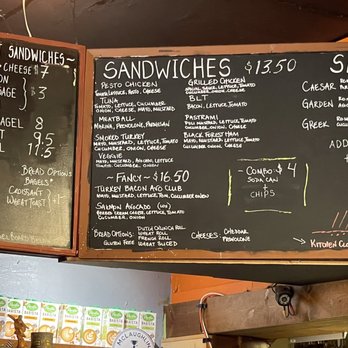 SANDWICHES ~
CHEESE $7
$3
BAGEL 8
9.5
11.5
BREAD OPTIONS:
BAGELS*
CROISSANT
WHEAT TOAST
SANDWICHES $13.50
PESTO CHICKEN
LETTUCE, PESTO, CHEESE
TUNA
TOMATO, LETTUCE, CUCUMBER
ONION, MAYO, MUSTARD
MEATBALL
MARINA, PROVOLONE, PARMESAN
SMOKED TURKEY
MAYO, MUSTARD, LETTUCE, TOMATO
CUCUMBER, ONION, CHEESE
VEGGIE
MAYO, MUSTARD, AVOCADO, LETTUCE
TOMATO, CUCUMBER, ONION, CHEESE
GRILLED CHICKEN
SPECIAL SAUCE, LETTUCE, TOMATO
CUCUMBER, ONION, CHEESE
BLT
BACON, LETTUCE, TOMATO
PASTRAMI
DELI MUSTARD, LETTUCE, TOMATO
CUCUMBER, ONION, CHEESE
BLACK FOREST HAM
MAYO, MUSTARD, LETTUCE, TOMATO
CUCUMBER, ONION, CHEESE
~ FANCY ~ $16.50
TURKEY BACON AVO CLUB
MAYO, MUSTARD, LETTUCE, TOM, CUCUMBER ONION
SALMON AVOCADO
CREAM CHEESE, LETTUCE, TOMATO
CUCUMBER, ONION
COMBO $4
SODA CAN
&
CHIPS
*BREAD OPTIONS:
GLUTEN FREE
DUTCH CRUNCH ROLL
WHEAT ROLL
FRENCH ROLL
WHEAT SLICED
CHEESES:
CHEDDAR
PROVOLONE
CAESAR
GARDEN
GREEK
ADD
KITCHEN